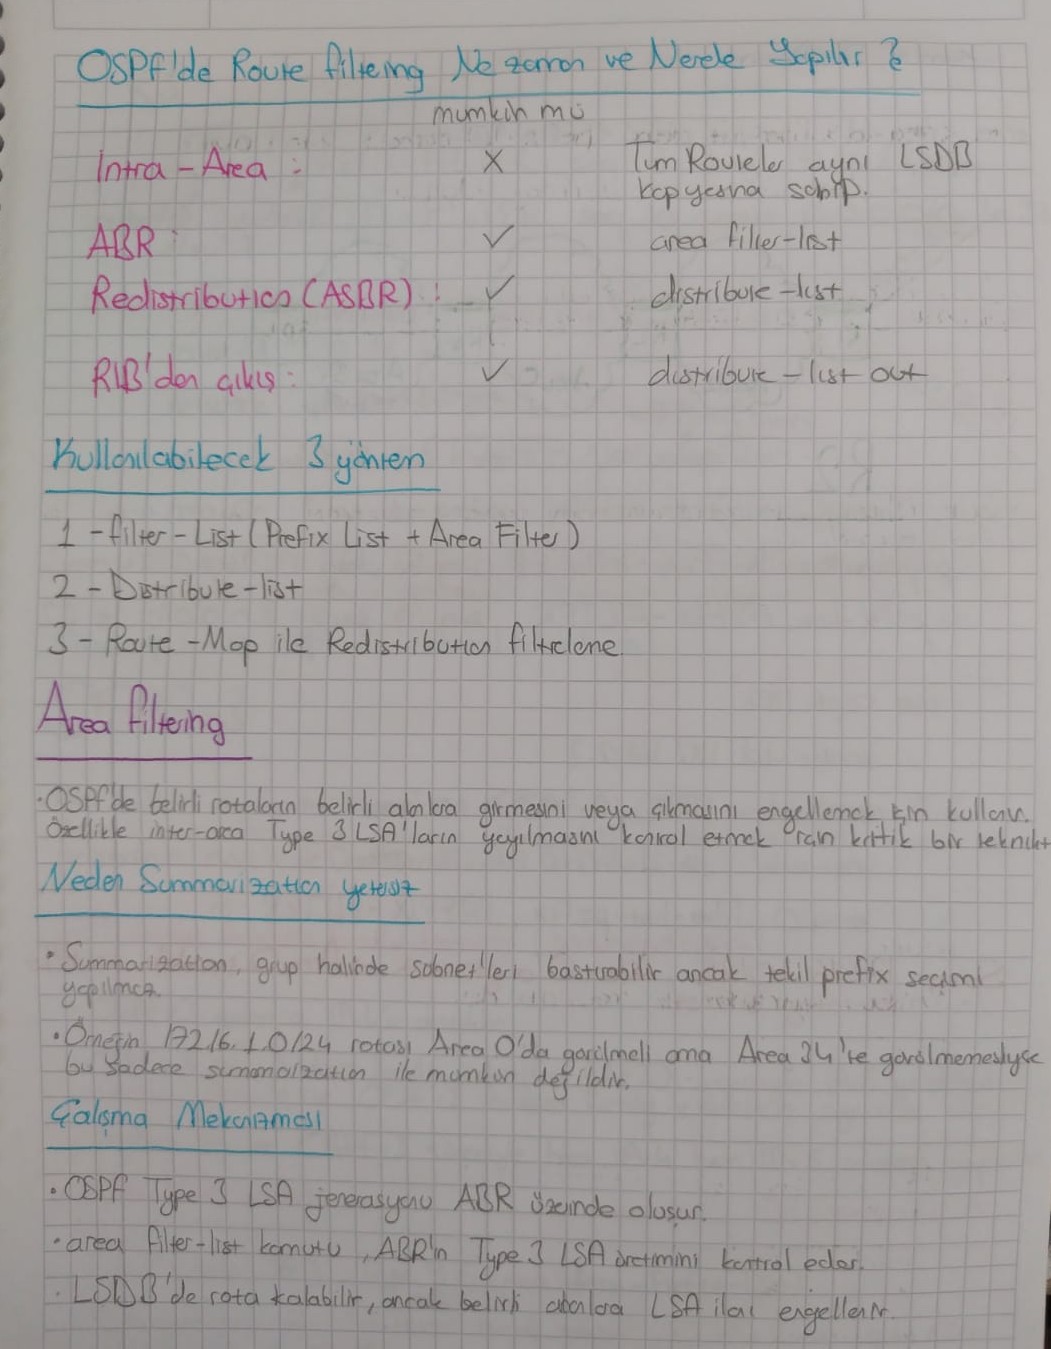 OSPF'de Route filtering Ne zaman ve Nerede Yapılır ?
mümkün mü
Intra - Area : X Tüm Routeler aynı LSDB
kopyasına sahip.
ABR : ✓ area filter-list
Redistribution (ASBR) : ✓ distribute-list
RIB'den çıkış : ✓ distribute-list out
Kullanılabilecek 3 yöntem
1 - filter - List (Prefix List + Area Filter)
2 - Distribute-list
3 - Route -Map ile Redistribution filtreleme
Area filtering
• OSPF'de belirli rotaların belirli alanlara girmesini veya çıkmasını engellemek için kullanılır.
Özellikle inter-area Type 3 LSA'ların yayılmasını kontrol etmek için kritik bir teknikt
Neden Summarization yetersiz
• Summarization, grup halinde subnet'leri bastırabilir ancak tekil prefix seçimi
yapılmaz.
• Örneğin 172.16.1.0/24 rotası Area 0'da görülmeli ama Area 34'te görülmemeliyse
bu sadece summarization ile mümkün değildir.
Çalışma Mekanizması
• OSPF Type 3 LSA jenerasyonu ABR üzerinde oluşur.
• area filter-list komutu, ABR'ın Type 3 LSA üretimini kontrol eder.
• LSDB'de rota kalabilir, ancak belirli alanlara LSA ilanı engellenir.